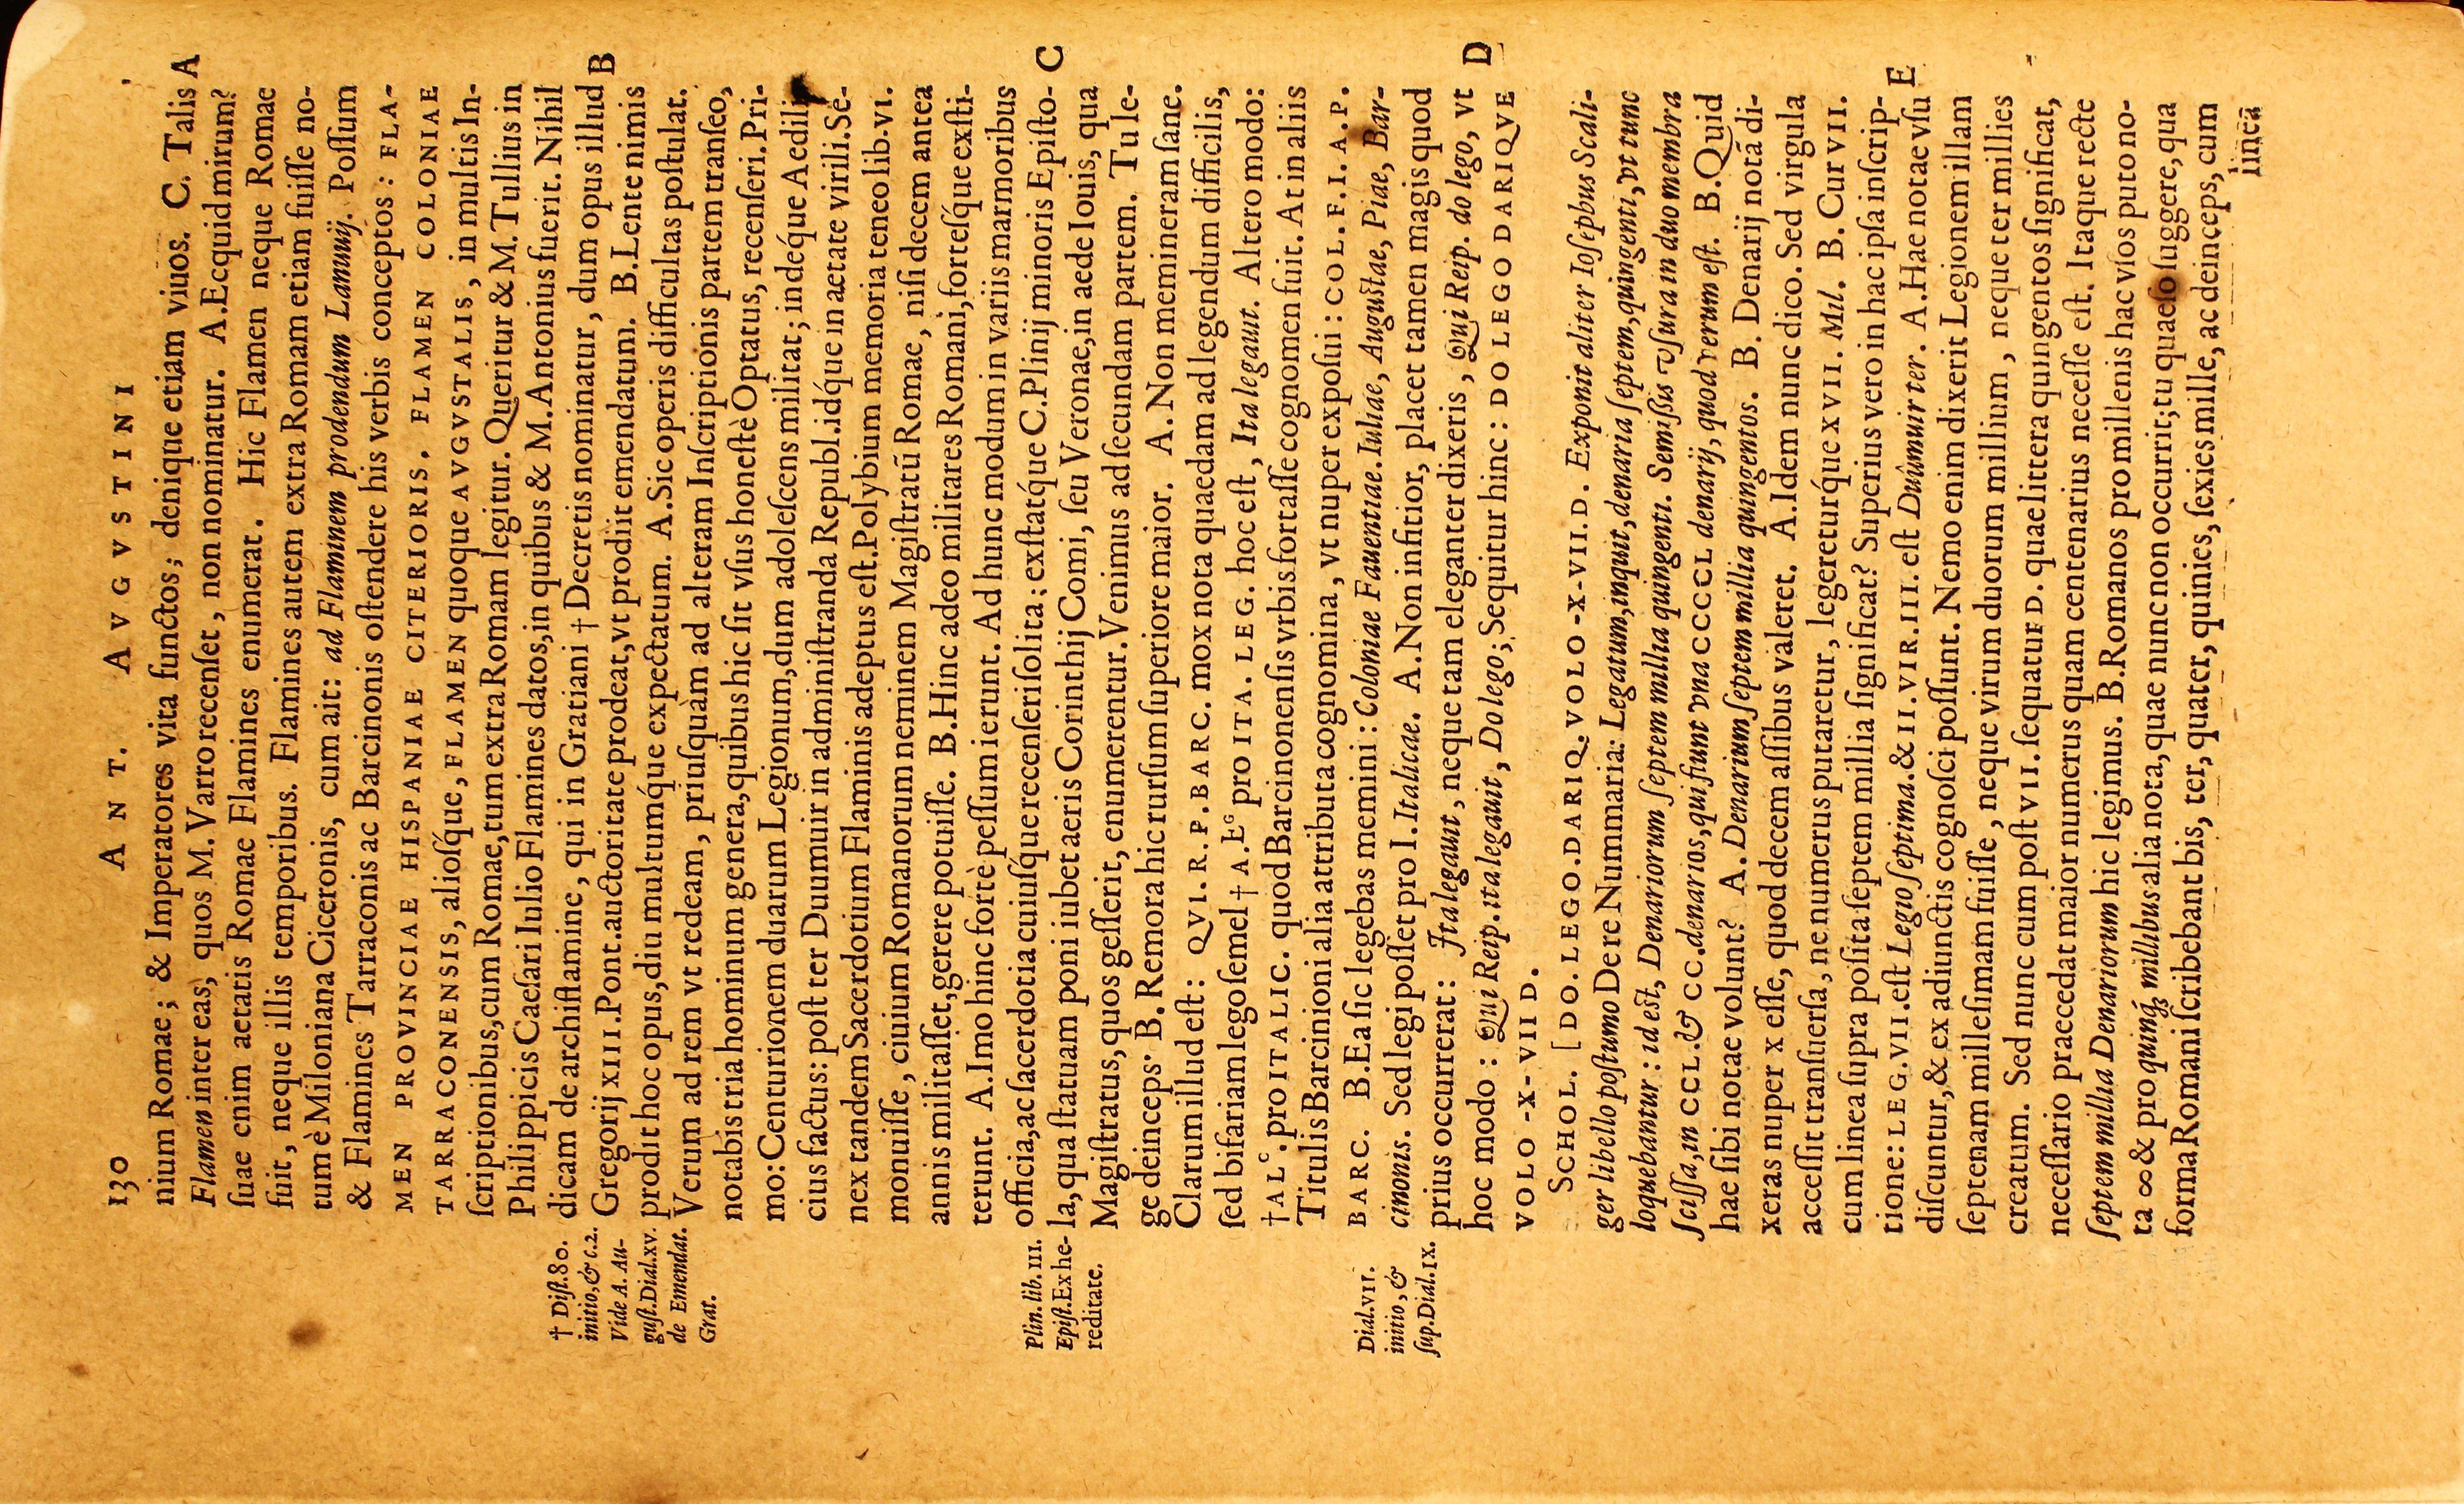 130 ANT. AVGVSTINI
nium Romae; & Imperatores vita functos; denique etiam viuos. C. Talis A
Flamen inter eas, quos M. Varro recenſet, non nominatur. A. Ecquid mirum?
ſuae enim aetatis Romae Flamines enumerat. Hic Flamen neque Romae
fuit, neque illis temporibus. Flamines autem extra Romam etiam fuiſſe no-
tum è Miloniana Ciceronis, cum ait: ad Flaminem prodendum Lanuuij. Poſſum
& Flamines Tarraconis ac Barcinonis oſtendere his verbis conceptos: FLA-
MEN PROVINCIAE HISPANIAE CITERIORIS. FLAMEN COLONIAE
TARRACONENSIS, alioſque, FLAMEN quoque AVGVSTALIS, in multis In-
ſcriptionibus, cum Romae, tum extra Romam legitur. Queritur & M. Tullius in
Philippicis Caeſari Iulio Flamines datos, in quibus & M. Antonius fuerit. Nihil
dicam de archiflamine, qui in Gratiani † Decretis nominatur, dum opus illud B
† Diſt. 80.
initio, & c. 2.
Vide A. Au-
guſt. Dial. xv.
de Emendat.
Grat.
Gregorij XIII. Pont. auctoritate prodeat, vt prodiit emendatum. B. Lente nimis
prodit hoc opus, diu multumq́ue expectatum. A. Sic operis difficultas poſtulat.
Verum ad rem vt redeam, priuſquàm ad alteram Inſcriptionis partem tranſeo,
notabis tria hominum genera, quibus hic ſit vſus honeſtè Optatus, recenſeri. Pri-
mo: Centurionem duarum Legionum, dum adoleſcens militat; indeq́ue Aedili-
cius factus: poſt ter Duumuir in adminiſtranda Republ. idq́ue in aetate virili. Se-
nex tandem Sacerdotium Flaminis adeptus eſt. Polybium memoria teneo lib. VI.
monuiſſe, ciuium Romanorum neminem Magiſtratū Romae, niſi decem antea
annis militaſſet, gerere potuiſſe. B. Hinc adeo militares Romani, forteſq́ue exſti-
terunt. A. Imo hinc fortè peſſum ierunt. Ad hunc modum in variis marmoribus
officia, ac ſacerdotia cuiuſq́ue recenſeri ſolita; exſtatq́ue C. Plinij minoris Epiſto- C
Plin. lib. III.
Epiſt. Ex he-
reditate.
la, qua ſtatuam poni iubet aeris Corinthij Comi, ſeu Veronae, in aede Iouis, qua
Magiſtratus, quos geſſerit, enumerentur. Venimus ad ſecundam partem. Tu le-
ge deinceps. B. Remora hic rurſum ſuperiore maior. A. Non memineram ſane.
Clarum illud eſt: QVI. R. P. BARC. mox nota quaedam ad legendum difficilis,
ſed bifariam lego ſemel † A. Eᴳ pro ITA. LEG. hoc eſt, Ita legauit. Altero modo:
† ALᶜ. pro ITALIC. quod Barcinonenſis vrbis fortaſſe cognomen fuit. At in aliis
Titulis Barcinioni alia attributa cognomina, vt nuper expoſui: COL. F. I. A. P.
BARC. B. Ea ſic legebas memini: Coloniae Fauentiae. Iuliae, Auguſtae, Piae, Bar-
Dial. VII.
initio, &
ſup. Dial. IX.
cinonis. Sed legi poſſet pro I. Italicae. A. Non infitior, placet tamen magis quod
prius occurrerat: Ita legauit, neque tam eleganter dixeris, Qui Reip. do lego, vt D
hoc modo: Qui Reip. ita legauit, Do lego; Sequitur hinc: DO LEGO DARIQVE
VOLO -X- VII D.
SCHOL. [DO. LEGO. DARIQ. VOLO -X- VII. D. Exponit aliter Ioſephus Scali-
ger libello poſtumo De re Nummaria: Legatum, inquit, denaria ſeptem, quingenti, vt tunc
loquebantur: id eſt, Denariorum ſeptem millia quingenti. Semiſſus vſura in duo membra
ſciſſa, in CCL. & CC. denarios, qui fiunt vna CCCCL denarij, quod verum eſt. B. Quid
hae ſibi notae volunt? A. Denarium ſeptem millia quingentos. B. Denarij notā di-
xeras nuper X eſſe, quod decem aſſibus valeret. A. Idem nunc dico. Sed virgula
acceſſit tranſuerſa, ne numerus putaretur, legereturq́ue XVII. Mil. B. Cur VII.
cum linea ſupra poſita ſeptem millia ſignificat? Superius vero in hac ipſa inſcrip-
tione: LEG. VII. eſt Legio ſeptima. & II. VIR. III. eſt Duûmuir ter. A. Hae notae vſu E
diſcuntur, & ex adiunctis cognoſci poſſunt. Nemo enim dixerit Legionem illam
ſeptenam milleſimam fuiſſe, neque virum duorum millium, neque ter millies
creatum. Sed nunc cum poſt VII. ſequatur D. quae littera quingentos ſignificat,
neceſſario praecedat maior numerus quam centenarius neceſſe eſt. Itaque recte
ſeptem millia Denariorum hic legimus. B. Romanos pro millenis hac vſos puto no-
ta ∞ & pro quinq́; millibus alia nota, quae nunc non occurrit; tu quaeſo ſuggere, qua
forma Romani ſcribebant bis, ter, quater, quinies, ſexies mille, ac deinceps, cum
linea